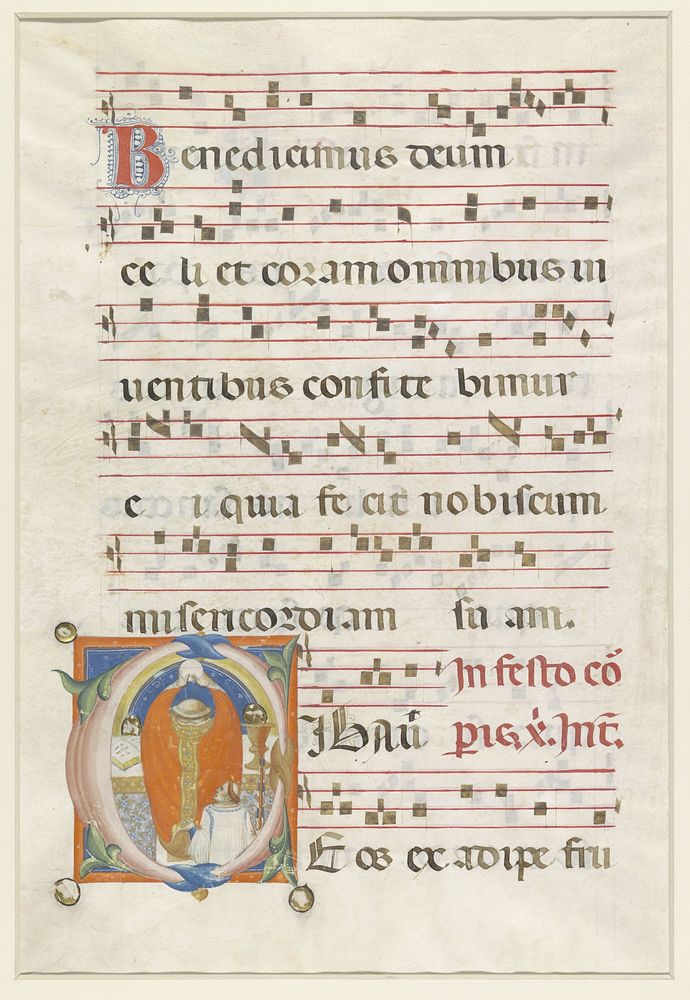 Benedicimus deum
ce li et coram omnibus ui
uentibus confite bimur
e i quia fe cit nobiscum
misericordiam su am.
In festo cō
pis. x̄. Int̄.
E os ex adipe fru